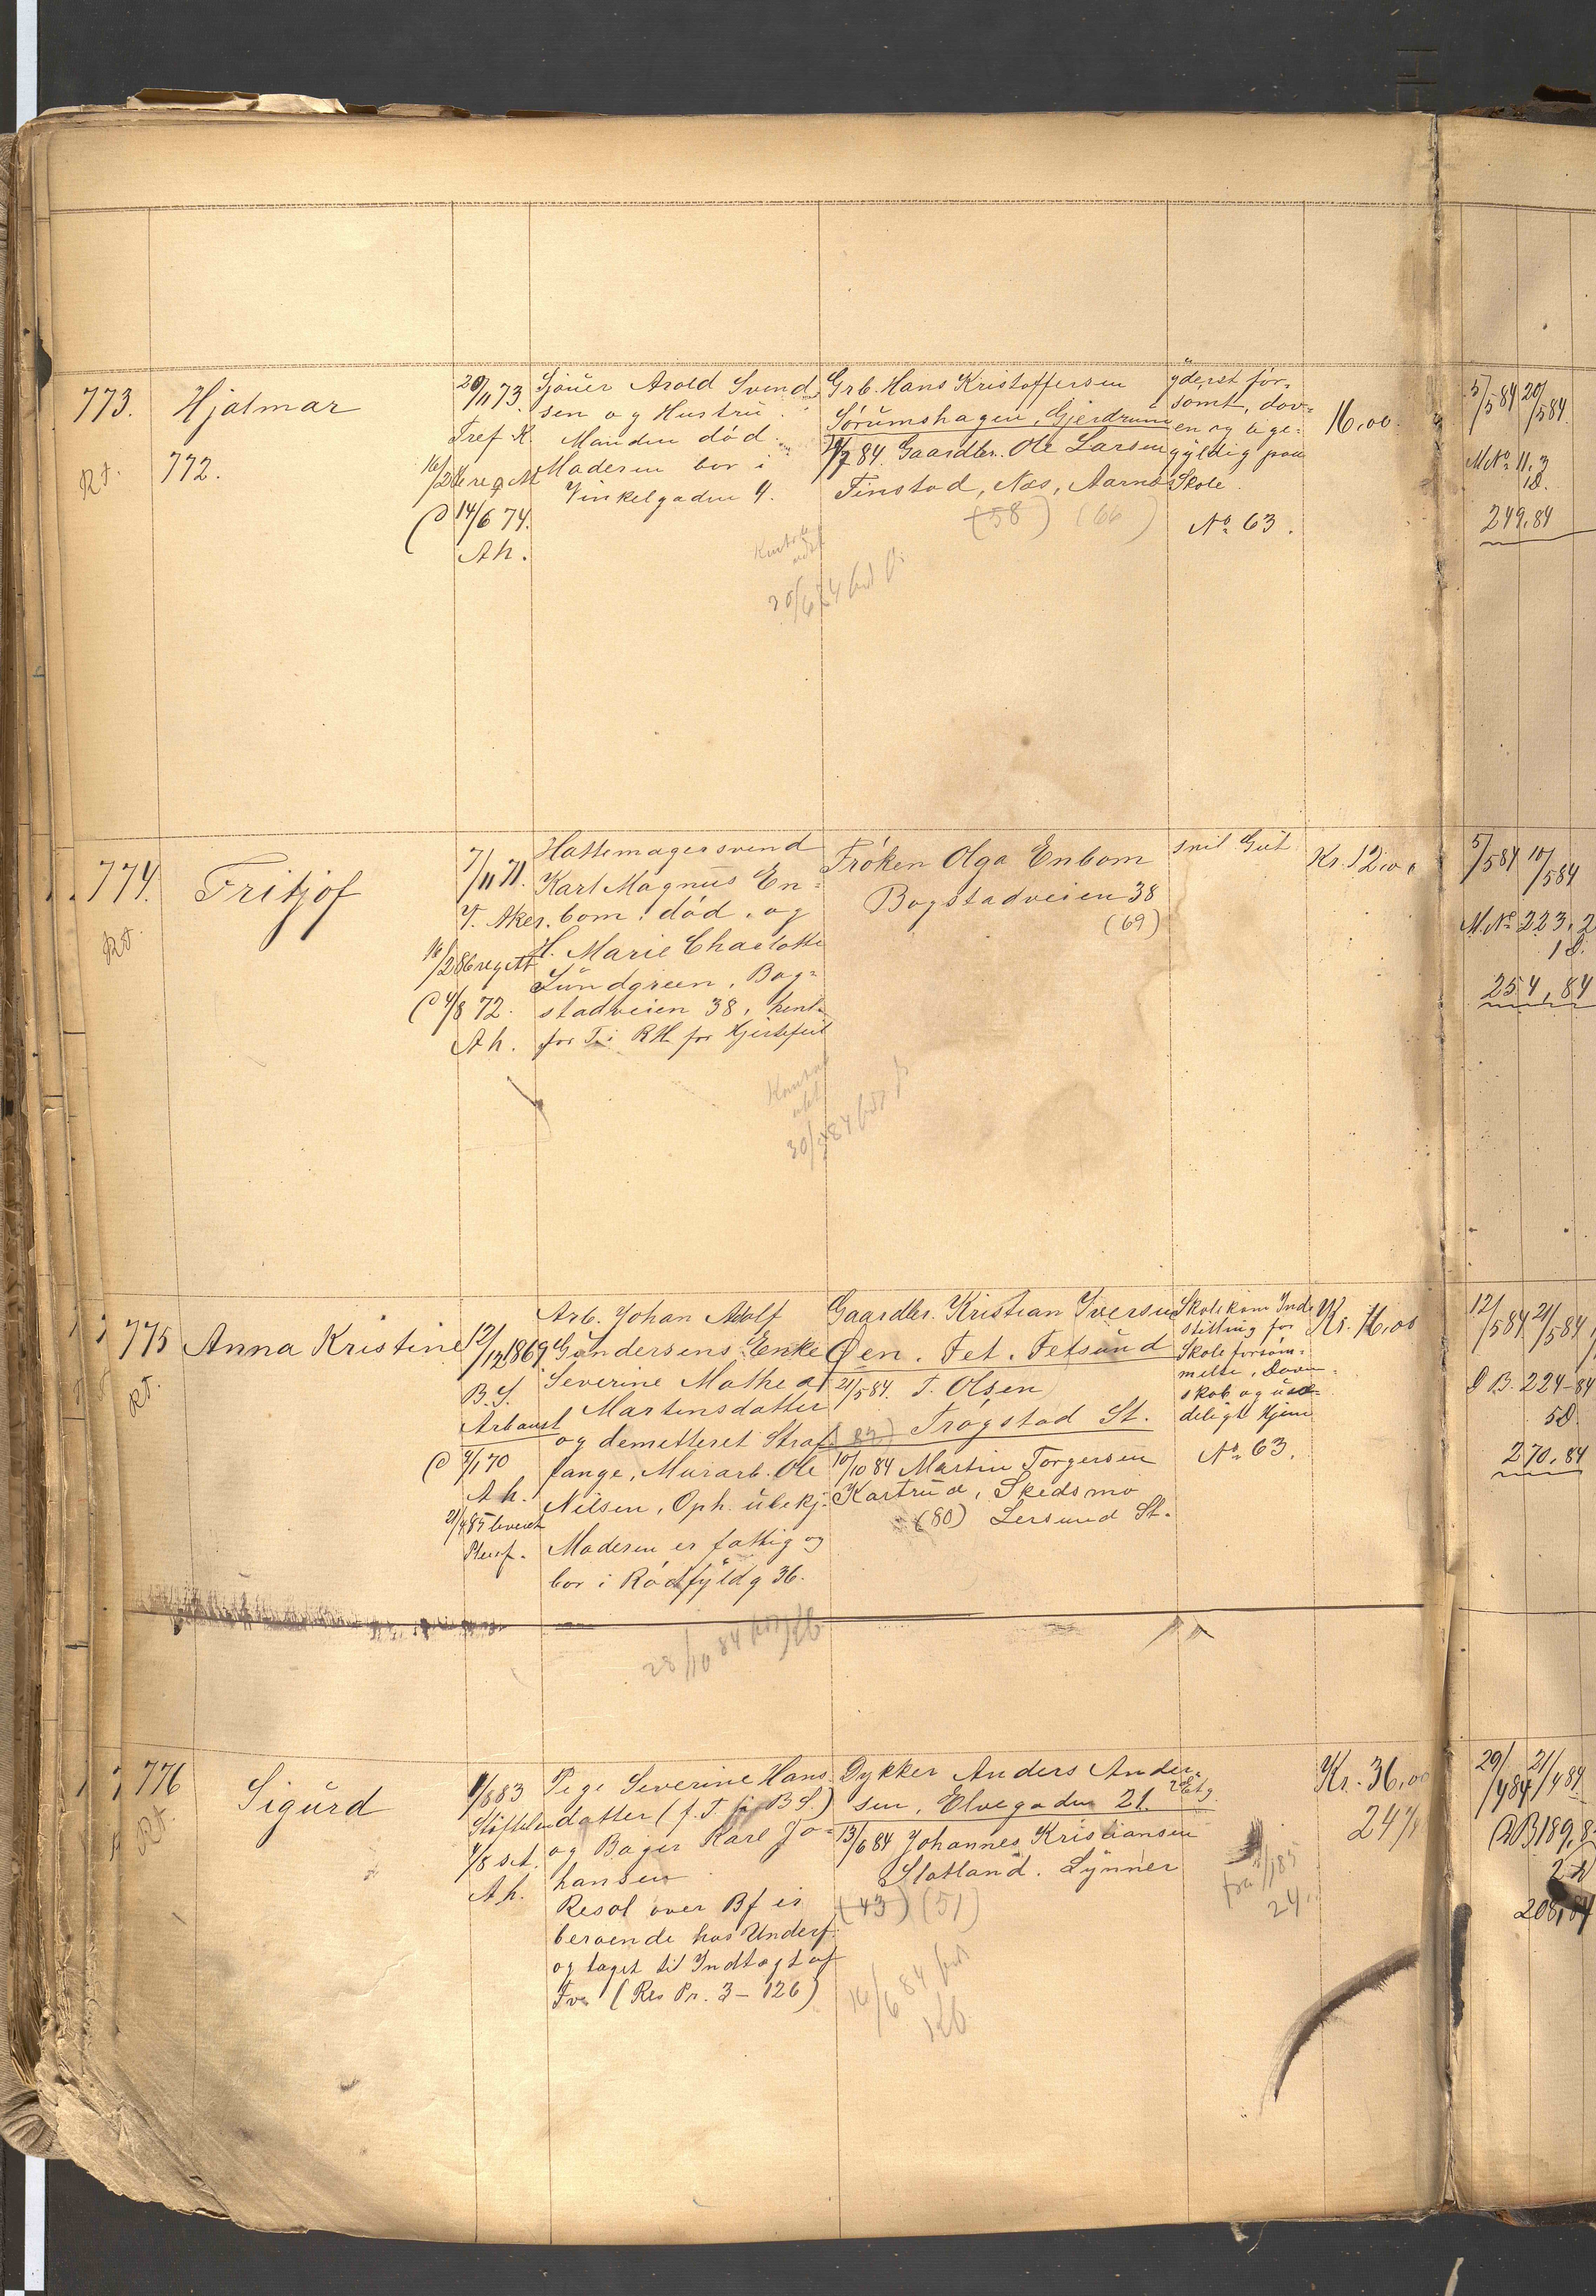 773.
Hjalmar
772.
Rt.
20/11 73
Tref K.
16/2 86 reg Att
14/6 74.
Ah.
Sjouer Arold Svend-
sen og Hustru
Manden død.
Moderen bor i
Vinkelgaden 4.
Grb. Hans Kristoffersen
Sørumshagen, Gjerdrum
84. Gaardbr. Ole Larsen
Finstad, Næs, Aarnæs
(58) (66)
yderst for-
somt, dov-
en og lige-
gyldig paa
Skole.
No 63.
16,00.
5/5 84 20/5 84.
M No 11,3
1D.
249,84
20/6 84
774.
Fritjof
Rt.
7/11 71.
V. Aker.
16/2 86 reg Att
4/8 72.
Ah.
Hattemagersvend
Karl Magnus En-
bom død. og
H. Marie Charlotte
Lundgreen, Bog-
stadveien 38,
for T. i RH for Hjertefeil
Frøken Olga Enbom
Bogstadveien 38
(69)
snil Gut
Kr. 12,00
5/5 84 10/5 84
M. No 223,2
1D.
254,84
775
Anna Kristine
Rt.
12/12 1869
B.S.
Arbanst
4/1 70
Ah.
21/4 85 leveret
Pleief.
Arb. Johan Adolf
Gundersens Enke
Severine Mathea
Martinsdatter
og demitteret Straf-
fange, Murarb. Ole
Nilsen, Oph. ubekj.
Moderen er fattig og
bor i Rødfyldg 36.
Gaardbr. Kristian Iversen
Øen. Fet. Fetsund
21/5 84. T. Olsen
Trøgstad St.
10/10 84 Martin Torgersen
Kastrud, Skedsmo
(80) Lersund St.
Skolekom Inds
stilling for
Skoleforsøm-
melse, Doven-
skab og usæ-
deligt Hjem
No 63.
Kr. 16,00
12/5 84 21/5 84
D B. 224-84
5D.
270,84
28/10 84
776
Sigurd
Rt.
83
Stiftelsen
4/8 s.t.
Ah.
Pige Severine Hans-
datter (f. T. fr BS.)
og Bager Karl Jo-
hansen
Resol over Bf er
beroende hos Underf.
og taget til Indtægt af
Fvs (Res Pr. 3-126)
Dykker Anders Ander-
sen, Elvegaden 21. 2 Etg
13/6 84 Johannes Kristiansen
Slatland. Lynner
(43) (51)
16/6 84
fra 1/1 85
24.
Kr. 36,00
24
29/4 84 21/4 84
DB 189,8
208,84